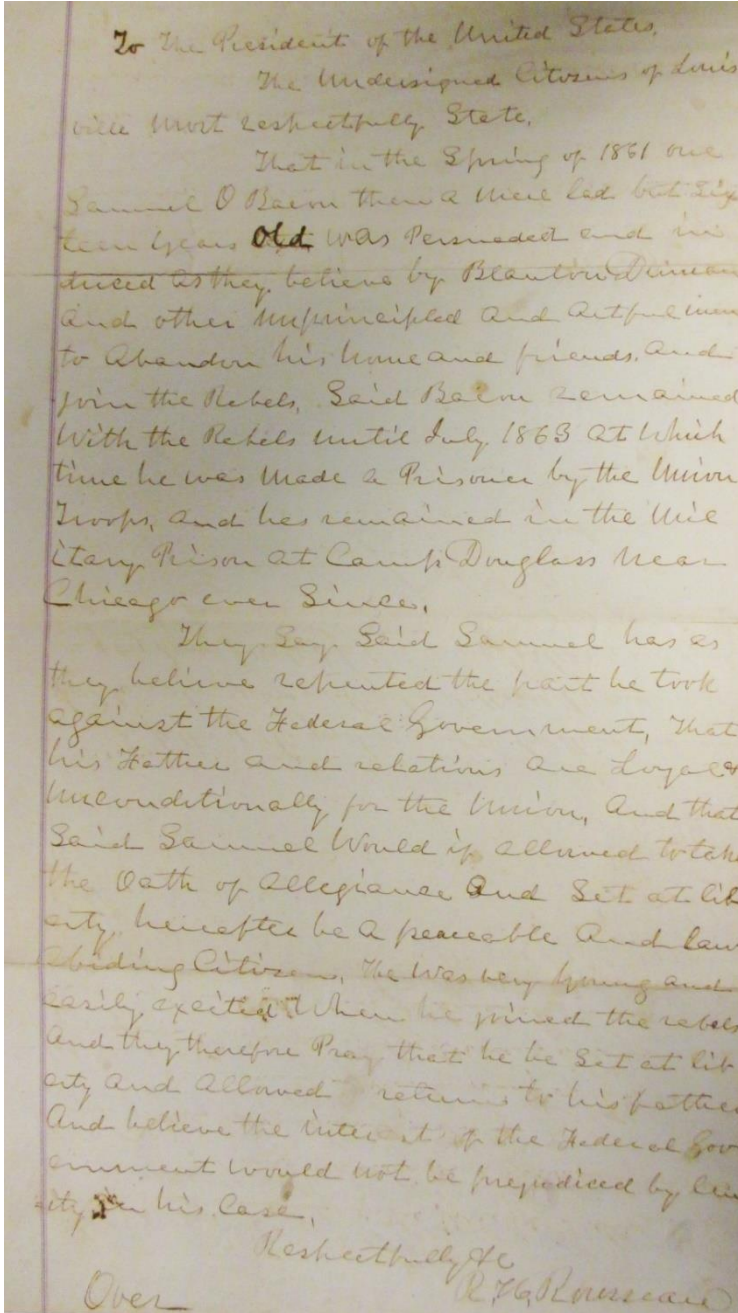 To The President of the United States.
The Undersigned Citizens of Louis
ville most respectfully State,
That in the Spring of 1861 one
Samuel O Bacon then a mere lad but Six
teen years Old was Persuaded and in
duced as they believe by Blanton Duncan
And other unprincipled and Artful men
to Abandon his home and friends. And
join the Rebels, Said Bacon remained
With the Rebels until July 1863 at Which
time he was Made a Prisoner by the Union
Troops, and has remained in the Mil
itary Prison at Camp Douglass near
Chicago ever Since,
They Say Said Samuel has as
they believe repented the part he took
against the Federal Government, That
his Father and relations are Loyal &
Unconditionally for the Union, And that
Said Samuel Would if allowed to take
the Oath of Allegiance And Set at lib
erty, hereafter be a peaceable And law
abiding Citizen, He was very young and
easily excited When he joined the rebels
And they therefore Pray that he be Set at lib
erty and Allowed return to his father
And believe the interest of the Federal Gov
ernment would not be prejudiced by len
ity in his Case,
Respectfully &c
Over R. H. Rousseau